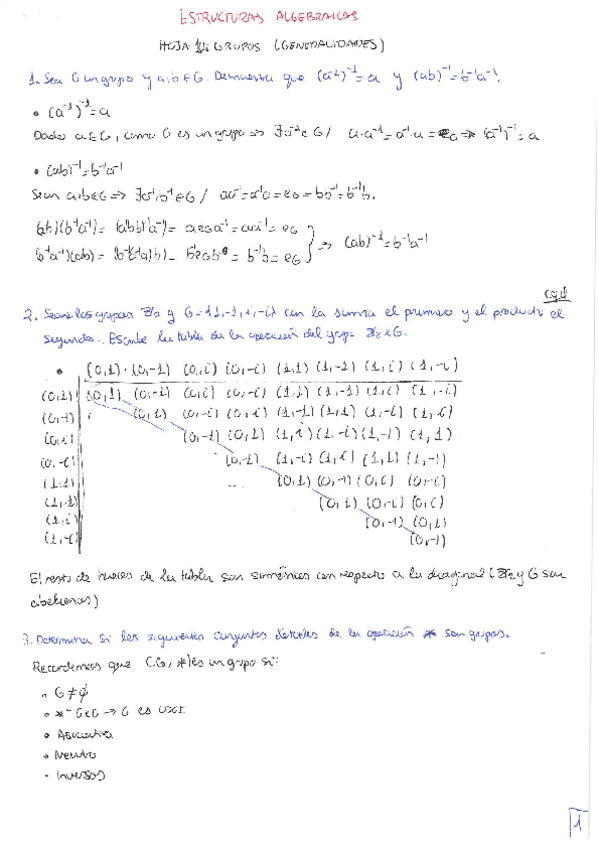 ESTRUCTURAS ALGEBRAICAS
HOJA 1: GRUPOS (GENERALIDADES)
1. Sea G un grupo y a,b∈G. Demuestra que (a⁻¹)⁻¹=a y (ab)⁻¹=b⁻¹a⁻¹.
• (a⁻¹)⁻¹=a
Dado a∈G, como G es un grupo => ∃a⁻¹∈G / a·a⁻¹=a⁻¹·a=e_G => (a⁻¹)⁻¹=a
• (ab)⁻¹=b⁻¹a⁻¹
Sean a,b∈G => ∃a⁻¹,b⁻¹∈G / aa⁻¹=a⁻¹a=e_G=bb⁻¹=b⁻¹b.
(ab)(b⁻¹a⁻¹)= (a(bb⁻¹)a⁻¹)= ae_Ga⁻¹=aa⁻¹=e_G
(b⁻¹a⁻¹)(ab)= (b⁻¹(a⁻¹a)b)= b⁻¹e_Gb = b⁻¹b=e_G } => (ab)⁻¹=b⁻¹a⁻¹
c.q.d
2. Sean los grupos ℤ/2 y G={1,-1,i,-i} con la suma el primero y el producto el
segundo. Escribe la tabla de la operación del grupo ℤ/2×G.
• (0,1) (0,-1) (0,i) (0,-i) (1,1) (1,-1) (1,i) (1,-i)
(0,1) (0,1) (0,-1) (0,i) (0,-i) (1,1) (1,-1) (1,i) (1,-i)
(0,-1) (0,1) (0,-i) (0,i) (1,-1) (1,1) (1,-i) (1,i)
(0,i) (0,-1) (0,1) (1,i) (1,-i) (1,-1) (1,1)
(0,-i) (0,-1) (1,-i) (1,i) (1,1) (1,-1)
(1,1) ... (0,1) (0,-1) (0,i) (0,-i)
(1,-1) (0,1) (0,-i) (0,i)
(1,i) (0,-1) (0,1)
(1,-i) (0,-1)
El resto de huecos de la tabla son simétricos con respecto a la diagonal (ℤ/2 y G son
abelianos)
3. Determina si los siguientes conjuntos dotados de la operación * son grupos.
Recordemos que (G,*) es un grupo si:
• G≠∅
• *: G×G → G es
• Asociativa
• Neutro
• Inversos
1